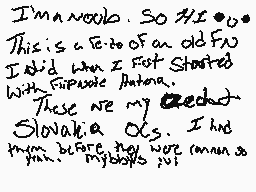 I'm a noob. SO HI •u•
This is a re-do of an old FN
I did when I First Started
With Flipnote Hatena.
These are my
Slovakia OCs. I had
them before they were common so
yeah. my bbys :U: